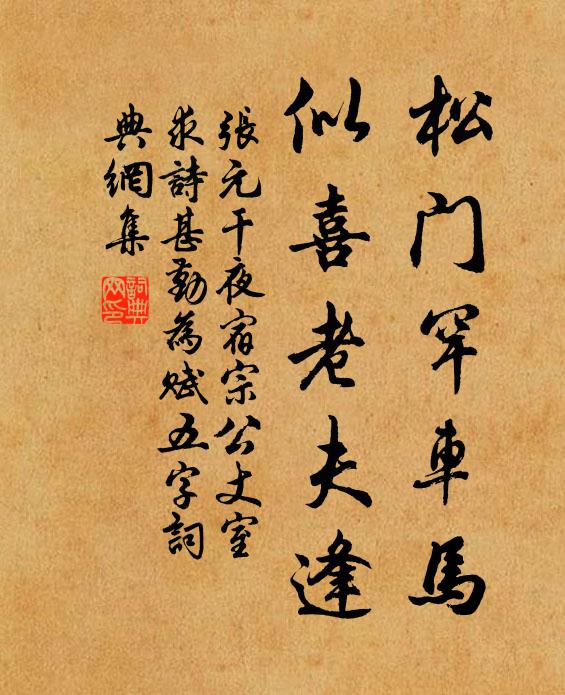 松門罕車馬
似喜老夫逢
張元干夜宿宗公丈室
求詩甚勤為賦五字詞
典網集
詞典網印